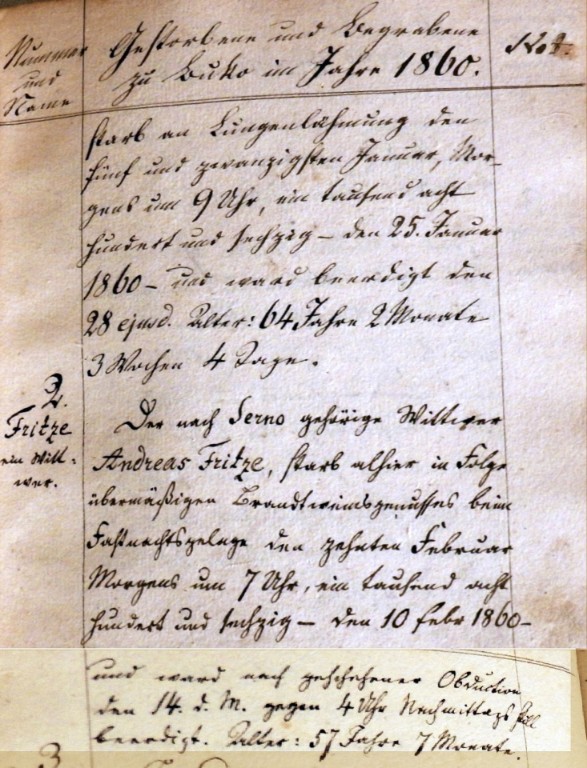 Nummer
und
Name
Gestorbene und Begrabene
zu Buko im Jahre 1860.
starb an Lungenlähmung den
fünf und zwanzigsten Januar, Mor-
gens um 9 Uhr, ein tausend acht
hundert und sechzig – den 25. Januar
1860 – und ward beerdigt den
28 ejusd. Alter: 64 Jahre 2 Monate
3 Wochen 4 Tage.
2.
Fritze
ein Witt-
wer.
Der nach Serno gehörige Wittwer
Andreas Fritze, starb alhier in Folge
übermäßigen Brandtweinsgenusses beim
Faßnachtsgelage den zehnten Februar
Morgens um 7 Uhr, ein tausend acht
hundert und sechzig – den 10 Febr 1860 –
und ward nach geschehener Obduction
den 14. d. M. gegen 4 Uhr Nachmittags still
beerdigt. Alter: 57 Jahre 7 Monate.
3